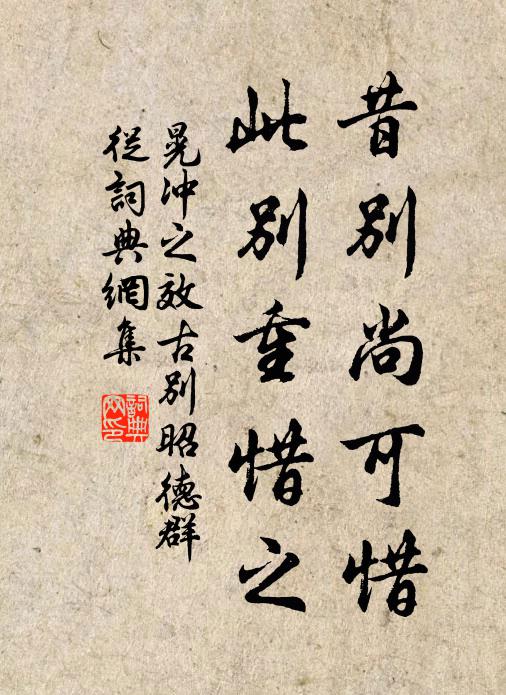 昔别尚可惜
此别重惜之
晁冲之效古别昭德群
從詞典網集
詞典网印